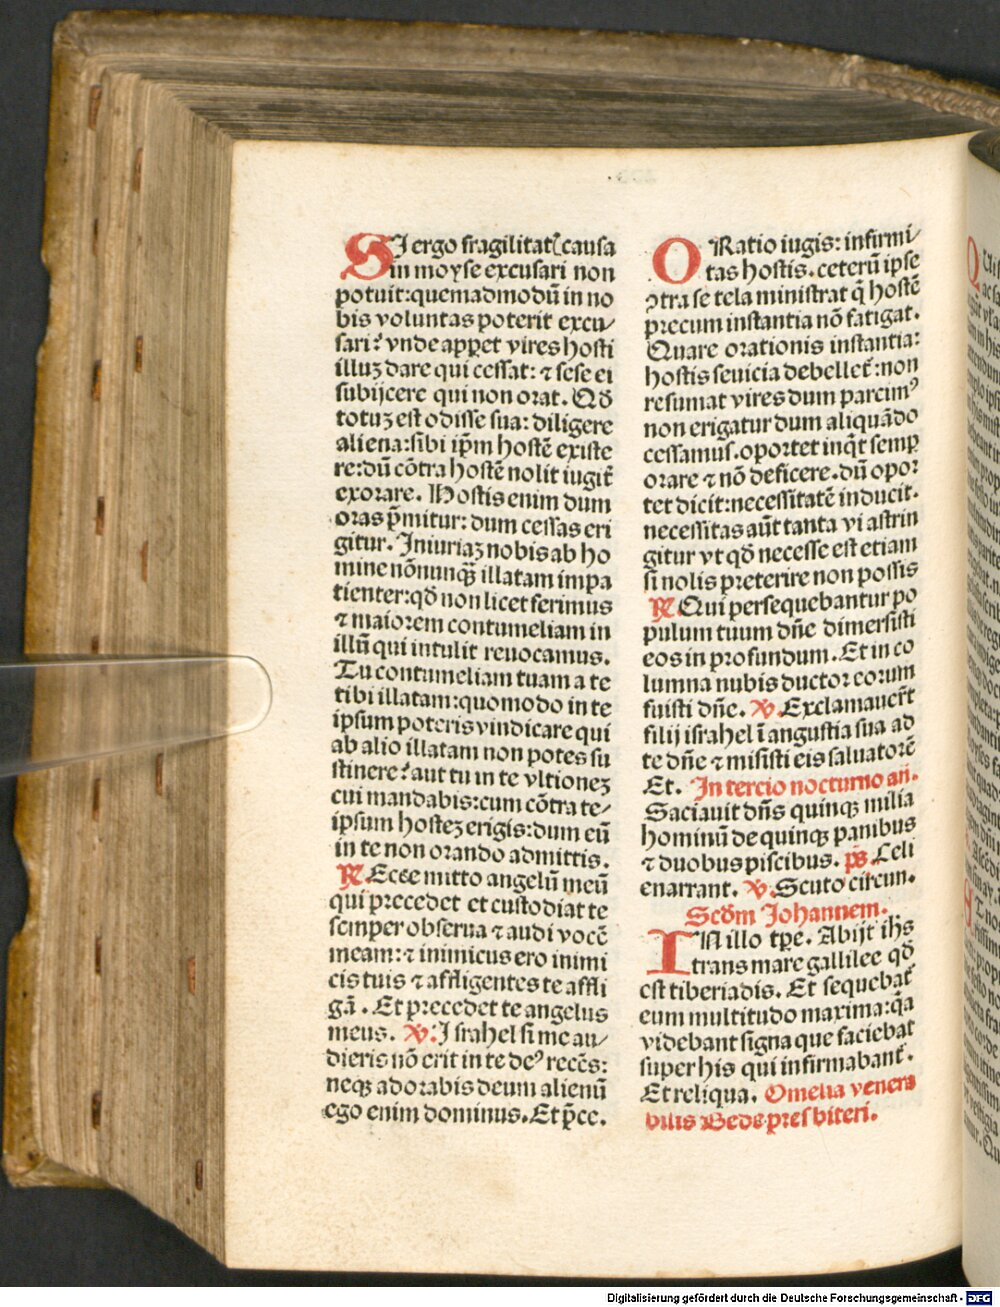 SI ergo fragilitatꝭ causa
in moyse excusari non
potuit:quemadmodū in no
bis voluntas poterit excu⸗
sari? vnde apꝑet vires hosti
illuꝫ dare qui cessat: ⁊ sese ei
subijcere qui non orat. Qđ
totuꝫ est odisse sua: diligere
aliena:sibi ip̄m hostē existe
re:dū cōtra hostē nolit iugit̄
exorare. Hostis enim dum
oras p̄mitur: dum cessas eri
gitur. Iniuriaꝫ nobis ab ho
mine nōnunqȝ̄ illatam impa
tienter:qđ non licet ferimus
⁊ maiorem contumeliam in
illū qui intulit reuocamus.
Tu contumeliam tuam a te
tibi illatam:quomodo in te
ipsum poteris vindicare qui
ab alio illatam non potes su
stinere? aut tu in te vltioneꝫ
cui mandabis:cum cōtra te⸗
ipsum hosteꝫ erigis:dum eū
in te non orando admittis.
℟. Ecce mitto angelū meū
qui precedet et custodiat te
semper obserua ⁊ audi vocē
meam: ⁊ inimicus ero inimi
cis tuis ⁊ affligentes te affli
gā. Et precedet te angelus
meus. ℣. Israhel si me au⸗
dieris nō erit in te deꝰ recēs:
neqȝ adorabis deum alienū
ego enim dominus. Et p̄ce.
ORatio iugis: infirmi⸗
tas hostis. ceterū ipse
ꝯtra se tela ministrat q̄ hostē
precum instantia nō fatigat.
Quare orationis instantia:
hostis seuicia debellet̄:non
resumat vires dum parcimꝰ
non erigatur dum aliquādo
cessamus. oportet inq̇t semꝑ
orare ⁊ nō deficere. dū opor
tet dicit:necessitatē inducit.
necessitas aūt tanta vi astrin
gitur vt qđ necesse est etiam
si nolis preterire non possis
℟. Qui persequebantur po
pulum tuum dn̄e dimersisti
eos in profundum. Et in co
lumna nubis ductor eorum
fuisti dn̄e. ℣. Exclamauer̄t
filij israhel ī angustia sua ad
te dn̄e ⁊ misisti eis saluatorē
Et. In tercio nocturno an̄.
Saciauit dn̄s quinqȝ milia
hominū de quinqȝ panibus
⁊ duobus piscibus. ps̄. Celi
enarrant. ℣. Scuto circun.
Scđm Johannem.
IN illo tꝑe. Abijt ihs
trans mare gallilee qđ
est tiberiadis. Et sequebat̄
eum multitudo maxima:q̇a
videbant signa que faciebat
super his qui infirmabant̄.
Et reliqua. Omelia venera
bilis Bede presbiteri.
Digitalisierung gefördert durch die Deutsche Forschungsgemeinschaft - DFG